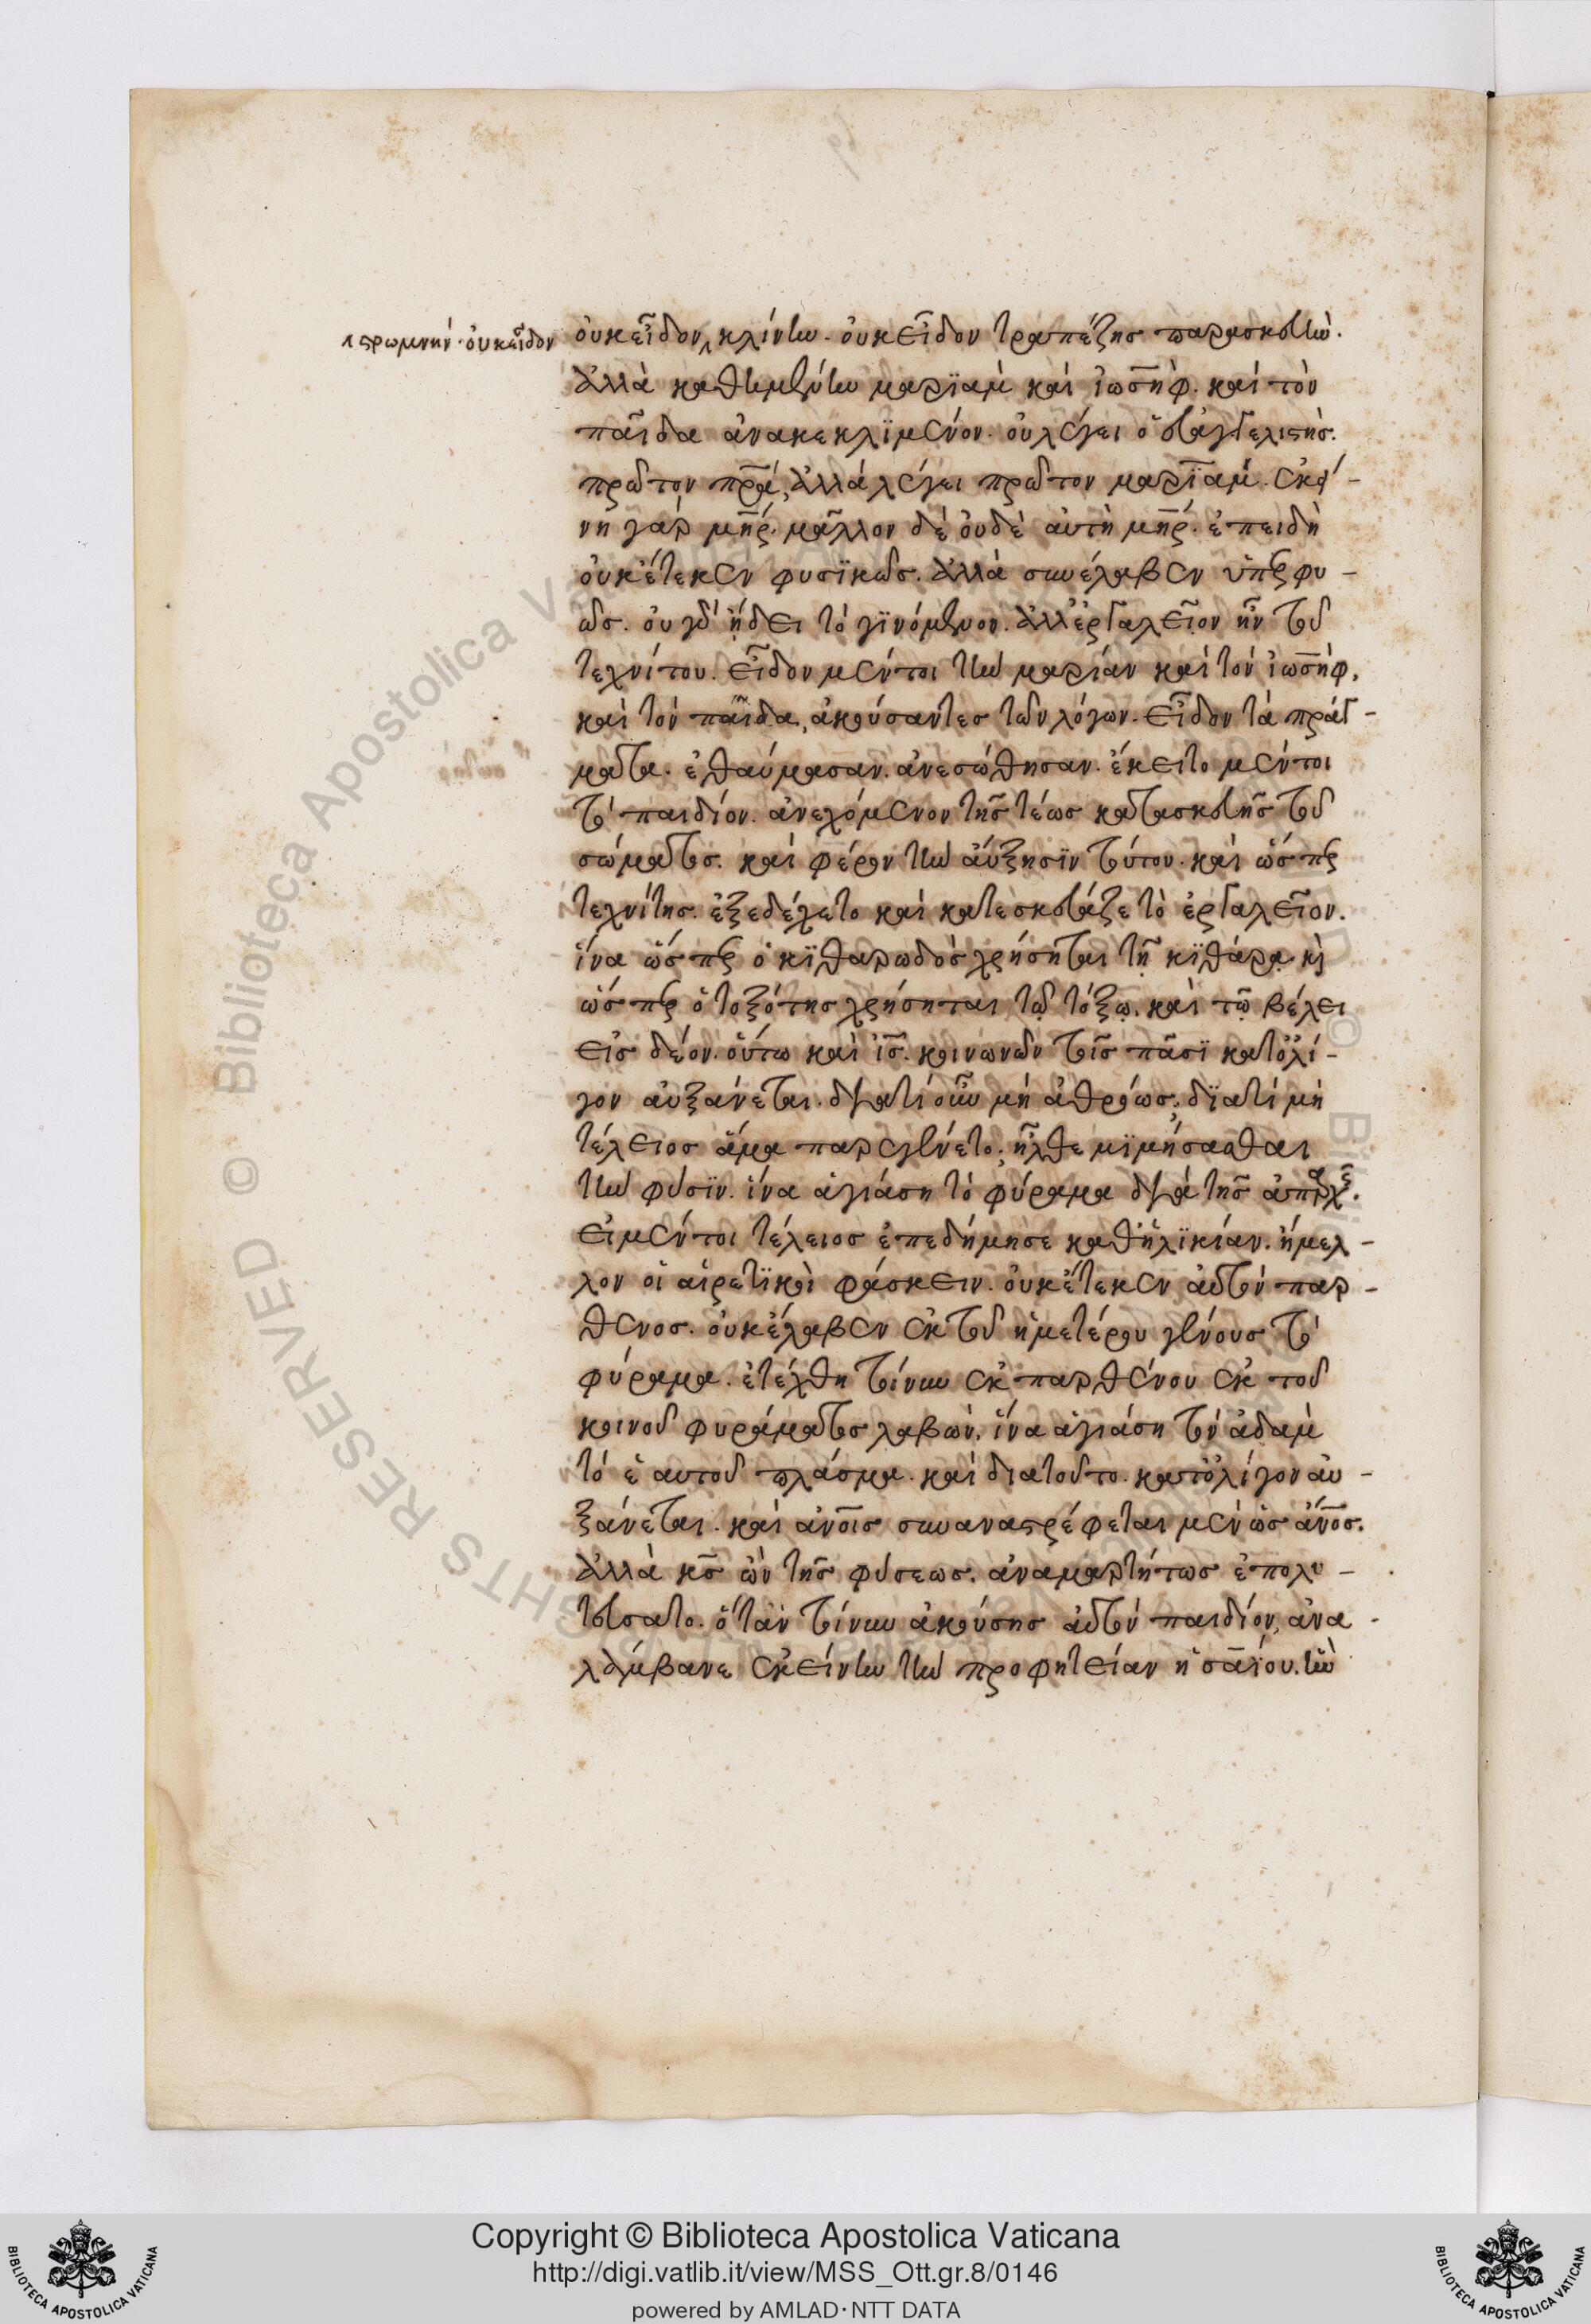 στρωμνήν· οὐκ εἶδον
οὐκ εἶδον κλίνην. οὐκ εἶδον τραπέζης παρασκευήν.
ἀλλὰ καθημένην μαρϊὰμ καὶ ἰωσὴφ. καὶ τὸν
παῖδα ἀνακεκλϊμένον. οὐ λέγει ὁ εὐαγγελιστὴς.
πρῶτον πρ̅α, ἀλλὰ λέγει πρῶτον μαρϊάμ. ἐκεί-
νη γὰρ μη̅ρ. μᾶλλον δὲ οὐδὲ αὐτὴ μη̅ρ. ἐπειδὴ
οὐκ ἔτεκεν φυσϊκῶς. ἀλλὰ συνέλαβεν ὑπερφυ-
ῶς. οὐ γὰρ ᾔδει τὸ γϊνόμενον. ἀλλ' ἐργαλεῖον ἦν τοῦ
τεχνίτου. εἶδον μέντοι τὴν μαρίαν καὶ τὸν ἰωσὴφ,
καὶ τὸν παῖδα, ἀκούσαντες τῶν λόγων. εἶδον τὰ πράγ-
ματα. ἐθαύμασαν. ἀνεσώθησαν. ἔκειτο μέντοι
τὸ παιδίον. ἀνεχόμενον τῆς τέως κατασκευῆς τοῦ
σώματος. καὶ φέρον τὴν αὔξησϊν τούτου. καὶ ὥσπερ
τεχνίτης. ἐξεδέχετο καὶ κατεσκεύαζε τὸ ἐργαλεῖον.
ἵνα ὥσπερ ὁ κϊθαρωδὸς χρήσηται τῆ κϊθάρᾳ κ̀
ὥσπερ ὁ τοξότης χρήσηται τῷ τόξῳ. καὶ τῷ βέλει
εἰς δέον. οὕτω καὶ ι̅ς. κοινωνῶν τοῖς πᾶσϊ κατ' ὀλί-
γον αὐξάνεται. διατί οὖν μὴ ἀθρόως; δϊατί μὴ
τέλειος ἅμα παρεγένετο; ἦλθε μϊμήσασθαι
τὴν φύσϊν. ἵνα ἁγιάση τὸ φύραμα διὰ τῆς ἀπαρχῆς.
εἰ μέντοι τέλειος ἐπεδήμησε καθ' ἡλϊκίαν. ἤμελ-
λον οἱ αἱρετϊκοὶ φάσκειν. οὐκ ἔτεκεν αὐτὸν παρ-
θένος. οὐκ ἔλαβεν ἐκ τοῦ ἡμετέρου γένους τὸ
φύραμα. ἐτέχθη τοίνυν ἐκ παρθένου ἐκ τοῦ
κοινοῦ φυράματος λαβὼν, ἵνα ἁγιάση τὸν ἀδὰμ
τὸ ἑαυτοῦ πλάσμα. καὶ διατοῦτο. κατ' ὀλίγον αὐ-
ξάνεται. καὶ ἀν̅οις συναναστρέφεται μὲν ὡς ἄν̅ος.
ἀλλὰ κ̅ς ὢν τῆς φύσεως. ἀναμαρτήτως ἐπολι-
τεύσατο. ὅταν τοίνυν ἀκούσης αὐτὸν παιδίον, ἀνα
λάμβανε ἐκείνην τὴν προφητείαν ἡσαΐου. τὴν
Copyright © Biblioteca Apostolica Vaticana
http://digi.vatlib.it/view/MSS_Ott.gr.8/0146
powered by AMLAD·NTT DATA